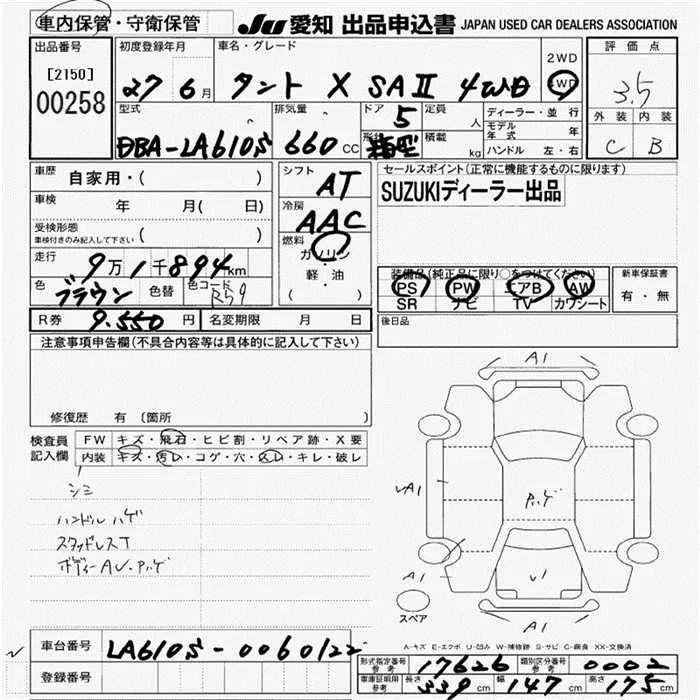 車内保管・守衛保管
JU 愛知 出品申込書 JAPAN USED CAR DEALERS ASSOCIATION
出品番号
[2150]
00258
初度登録年月
27 6月
車名・グレード
タント X SAⅡ 4WD
2WD
4WD
評価点
3.5
外装 内装
C B
型式
DBA-LA610S
排気量
660 cc
ドア
5
定員
人
形状
箱型
積載
kg
ディーラー・並行
モデル年式 年
ハンドル 左・右
車歴
自家用・( )
車検
年 月( 日)
受検形態
車検付きのみ記入して下さい ( )
走行
9万1千894km
色
ブラウン
色替
色コード
R59
シフト
AT
冷房
AAC
燃料
ガソリン
軽・油
( )
セールスポイント(正常に機能するものに限ります)
SUZUKIディーラー出品
装備品(純正品に限り○をつけてください)
PS PW エアB AW
SR ナビ TV カワシート
新車保証書
有・無
R券 9.550 円
名変期限 月 日
後日品
注意事項申告欄(不具合内容等は具体的に記入して下さい)
修復歴 有 (箇所
検査員
記入欄
FW キズ・飛石・ヒビ割・リペア跡・X要
内装 キズ・汚レ・コゲ・穴・スレ・キレ・破レ
シミ
ハンドルハゲ
スタッドレスT
ボディーAU・Pハゲ
A1
UA1
Pハゲ
U1
A1
A1
スペア
A-キズ E-エクボ U-凹み W-補修跡 S-サビ C-腐食 XX-交換済
車台番号
LA610S-0060122
登録番号
形式指定番号
参考
17626
類別区分番号
参考
0002
車庫証明用
参考
長さ 339 cm
幅 147 cm
高さ 175 cm